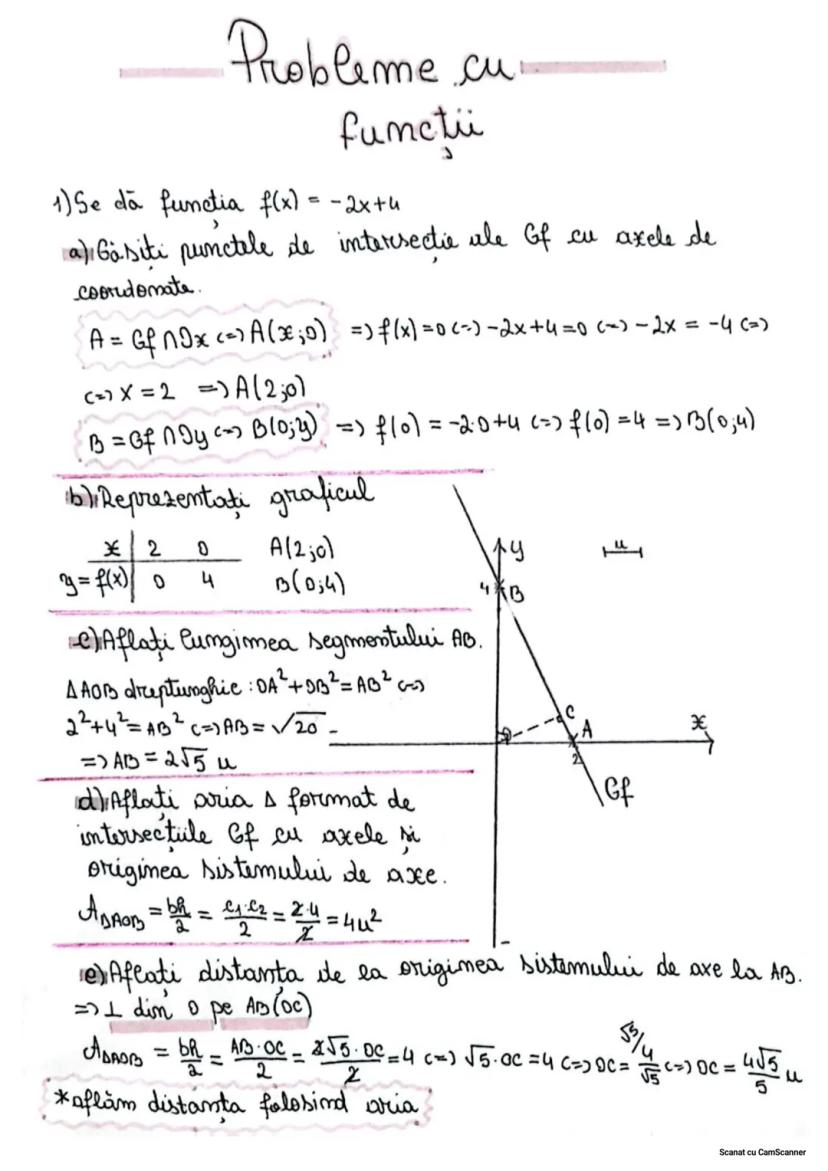 Probleme cu
funcții
1) Se dă funcția f(x) = -2x+4
a) Găsiți punctele de intersecție ale Gf cu axele de
coordonate.
A = Gf ∩ Ox <=> A(x;0) => f(x)=0 <=> -2x+4=0 <=> -2x = -4 <=>
<=> x = 2 => A(2;0)
B = Gf ∩ Oy <=> B(0;y) => f(0) = -2·0+4 <=> f(0) = 4 => B(0;4)
b) Reprezentați graficul
x | 2 0 A(2;0)
y = f(x) | 0 4 B(0;4)
c) Aflați lungimea segmentului AB.
ΔAOB dreptunghic : OA²+OB² = AB² <=>
2²+4² = AB² <=> AB = √20
=> AB = 2√5 u
y
u
4 B
C
A
x
O
2
Gf
d) Aflați aria Δ format de
intersecțiile Gf cu axele și
originea sistemului de axe.
A_ΔAOB = bh/2 = c₁·c₂/2 = 2·4/2 = 4u²
e) Aflați distanța de la originea sistemului de axe la AB.
=> ⊥ din O pe AB (OC)
A_ΔAOB = bh/2 = AB·OC/2 = 2√5·OC/2 = 4 <=> √5·OC = 4 <=> OC = √5)4/√5 <=> OC = 4√5/5 u
*aflăm distanța folosind aria
Scanat cu CamScanner